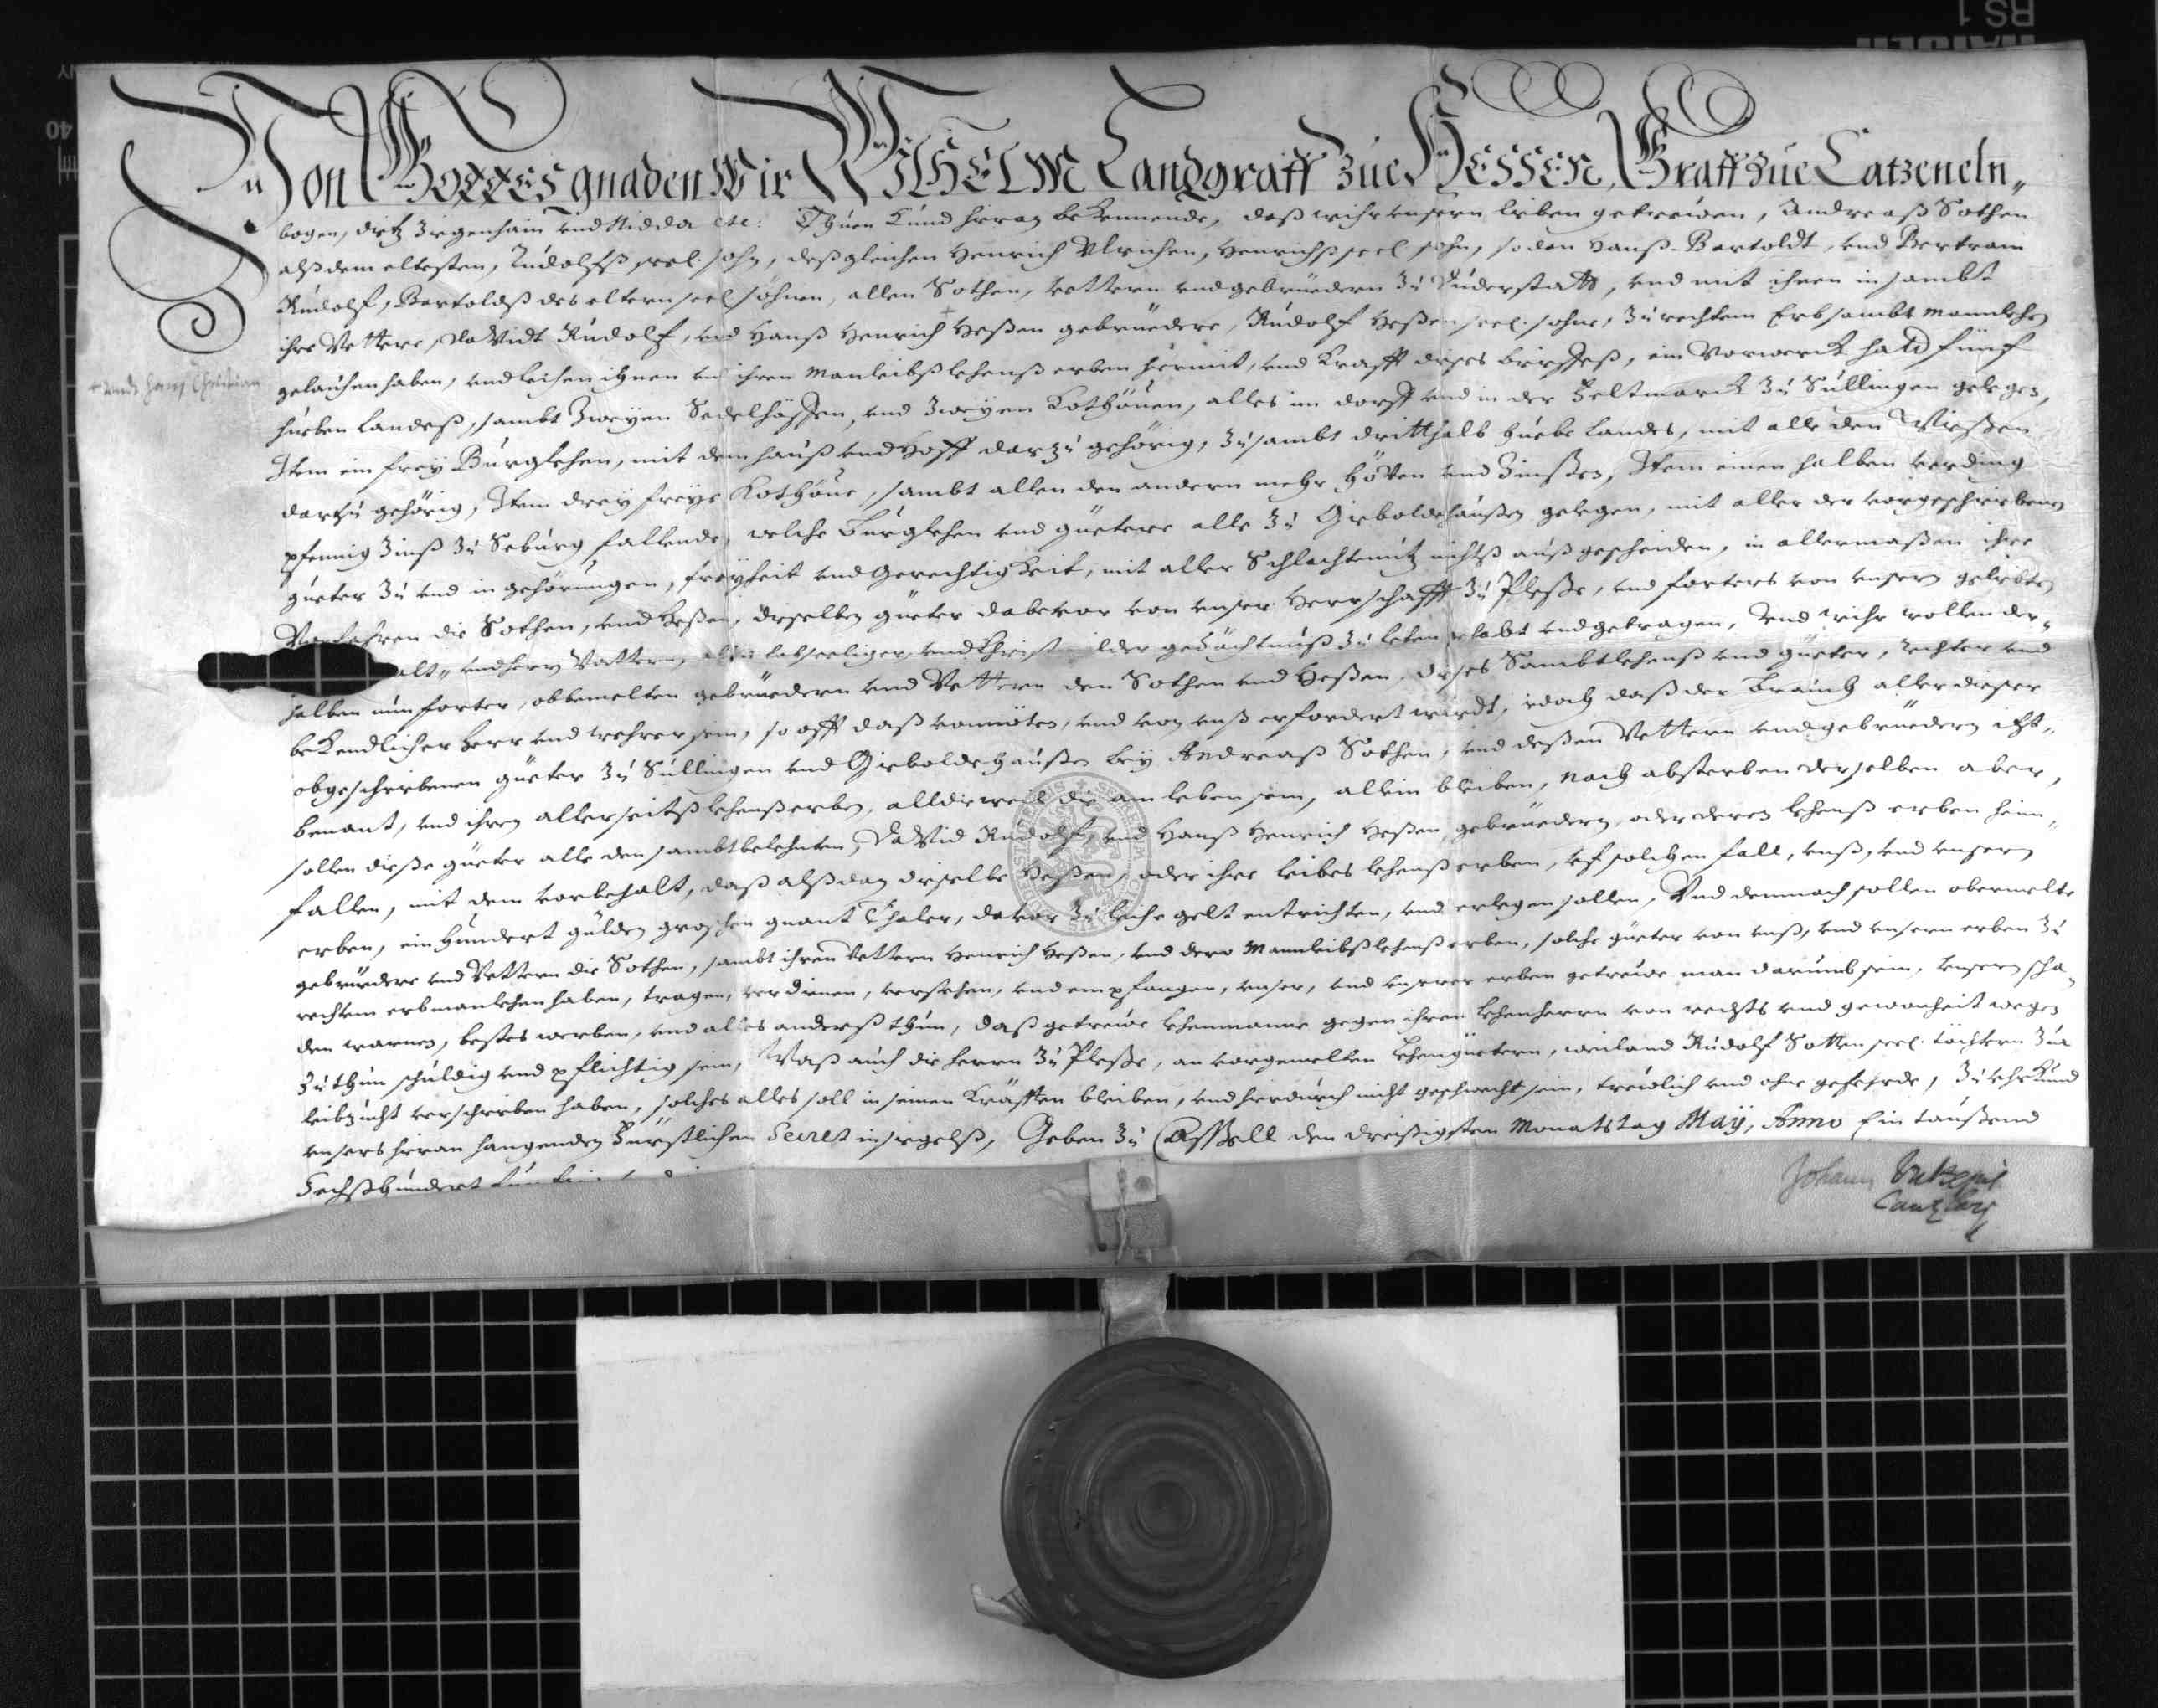 Von Gottes gnaden Wir Wilhelm Landgraff zue Hessen, Graff zue Catzeneln„
bogen, Dietz Ziegenhain vnd Nidda etc: Thuen kund hieran bekennende, daß wihr vnsern lieben getrewen, Andreaß Sothen
alß dem eltesten, Rudolfß seel. sohn, deßgleichen Henrich Vlrichen, Henrichß seel sohn, so dan Hanß-Bartoldt, vnd Bertram
Rudolf, Bartoldß des eltern seel söhnen, allen Sothen, vettern vnd gebruedern zu Duderstatt, vnd mit ihnen in sambt
ihre Vettere, David Rudolf, vnd Hanß Henrich Heßen gebruedere, Rudolf Heßen seel. sohne, zu rechtem Erbsambt Mannlehen
+ undt Hanß Christian
geliehen haben, vnd leihen ihnen vnd ihren Manleibß lehenß erben hiermit, vnd Krafft dieses brieffeß, ein Vorwerck hatt fünf
hueben landeß, sambt zweyen Sedelhöffen, vnd zweyen Kothöuen, alles im dorff vnd in der Feltmarck zu Süllingen gelegen,
Item ein frey Burglehen, mit dem hauß vnd hoff darzu gehörig, zusambt dritthalb huebe landes, mit alle den Wießen
darzu gehörig, Item drey freye Kothöue, sambt allen den andern mehr höven vnd Zinßen, Item einen halben verding
pfennig Zinß zu Seburg fallende, welche Burglehen vnd guetere alle zu Gieboldehaußen gelegen, mit aller der vorgeschriebenen
gueter zu vnd in gehörungen, freyheit vnd Gerechtigkeit, mit aller Schlachtnutz nichtß außgescheiden, in allermaßen ihre
Vorfahren die Sothen, vnd Heßen, dieselben güeter dabevor von vnser Herrschafft zu Pleße, vnd forters von vnsern geliebten
alt„ vnd herrn Vattern, lobseeliger, vnd Christ milder gedächtnuß zu lehen gehabt vnd getragen, Vnd wihr wollen der„
halben nun forter, obbemelten gebrüedern vnd Vettern den Sothen vnd Heßen, dieses Sambtlehenß vnd güeter, rechter vnd
bekendlicher herr vnd wehrer sein, so offt daß vonnöten, vnd von vnß erfordert wirdt, iedoch daß der brauch aller dieser
obgeschriebenen güeter zu Süllingen vnd Gieboldehaußen bey Andreaß Sothen, vnd deßen Vettern vnd gebrüedern itzt„
benant, vnd ihren allerseitß lehenßerben, alldieweil die am leben sein, allein bleiben, Nach absterben derselben aber,
sollen dieße güeter alle den sambtbelehnten, David Rudolf, vnd Hanß Henrich Heßen gebrüedern, oder deren lehenß erben heim„
fallen, mit dem vorbehalt, daß alßdan dieselbe Heßen, oder ihre leibes lehenß erben, vf solchen fall, vnß, vnd vnsern
erben, ein hundert gülden groschen gnant Thaler, davor zu leihe gelt entrichten, vnd erlegen sollen, Vnd demnach sollen obermelte
gebrüedere vnd Vettern die Sothen, sambt ihren Vettern Henrich Heßen, vnd dero Mannleibß lehenß erben, solche güeter von vnß, vnd vnsern erben zu
rechtem erbmanlehen haben, tragen, verdienen, versehen, vnd empfangen, vnser, vnd vnserer erben getrewe man darumb sein, vnsern scha„
den warnen, bestes werben, vnd alles anderß thun, daß getrewe lehenmanne gegen ihren lehenherrn von rechts vnd gewonheit wegen
zu thun schuldig vnd pflichtig sein, Waß auch die herrn zu Pleße, an vorgemelten lehengüetern, weiland Rudolf Sothen seel. töchtern zur
leibzucht verschrieben haben, solches alles soll in seinen Kräfften bleiben, vnd hierdurch nicht geschwecht sein, trewlich vnd ohne gefehrde, zu vhrkund
vnsers hieran hangenden Fürstlichen Secret insiegelß, Geben zu Caßell den dreißigsten Monatstag Maÿ, Anno Ein taußend
Sechßhundert
Johann
Cantzlar